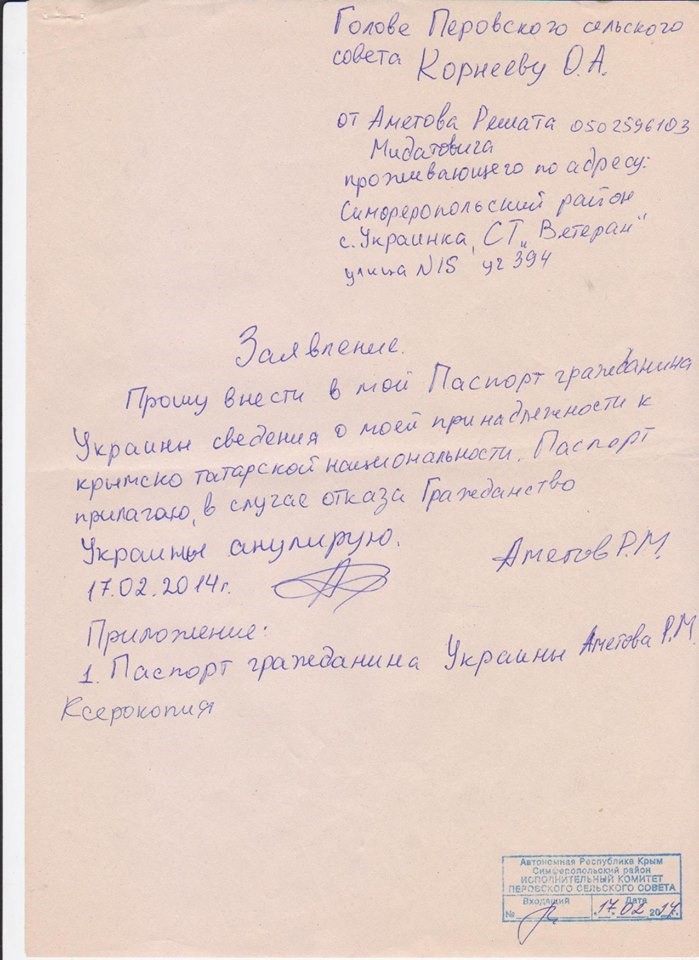 Голове Перовского сельского
совета Корнееву О.А.
от Аметова Решата 0502596103
Мидатовига
проживающего по адресу:
Симреропольский район
с. Украинка, СТ „Ветеран"
улица N15 уг 394
Заявление.
Прошу внести в мой Паспорт гражданина
Украины сведения о моей принадлежности к
крымско татарской национальности. Паспорт
прилагаю, в случае отказа Гражданство
Украины анулирую.
17.02.2014г.
Аметов Р.М.
Приложение:
1. Паспорт гражданина Украины Аметова Р.М.
Ксерокопия
Автономная Республика Крым
Симферопольский район
ИСПОЛНИТЕЛЬНЫЙ КОМИТЕТ
ПЕРОВСКОГО СЕЛЬСКОГО СОВЕТА
Входящий Дата
№ 17.02 2014.